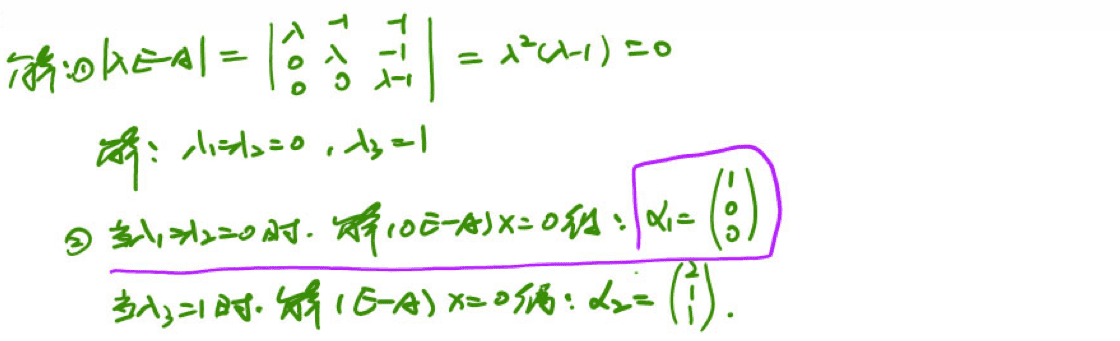 解:①|λE-A|= |λ -1 -1; 0 λ -1; 0 0 λ-1| = λ²(λ-1)=0
解: λ₁=λ₂=0,λ₃=1
② 当λ₁=λ₂=0时. 解(0E-A)x=0得: α₁=(1 0 0)
当λ₃=1时. 解(E-A)x=0得: α₂=(2 1 1).